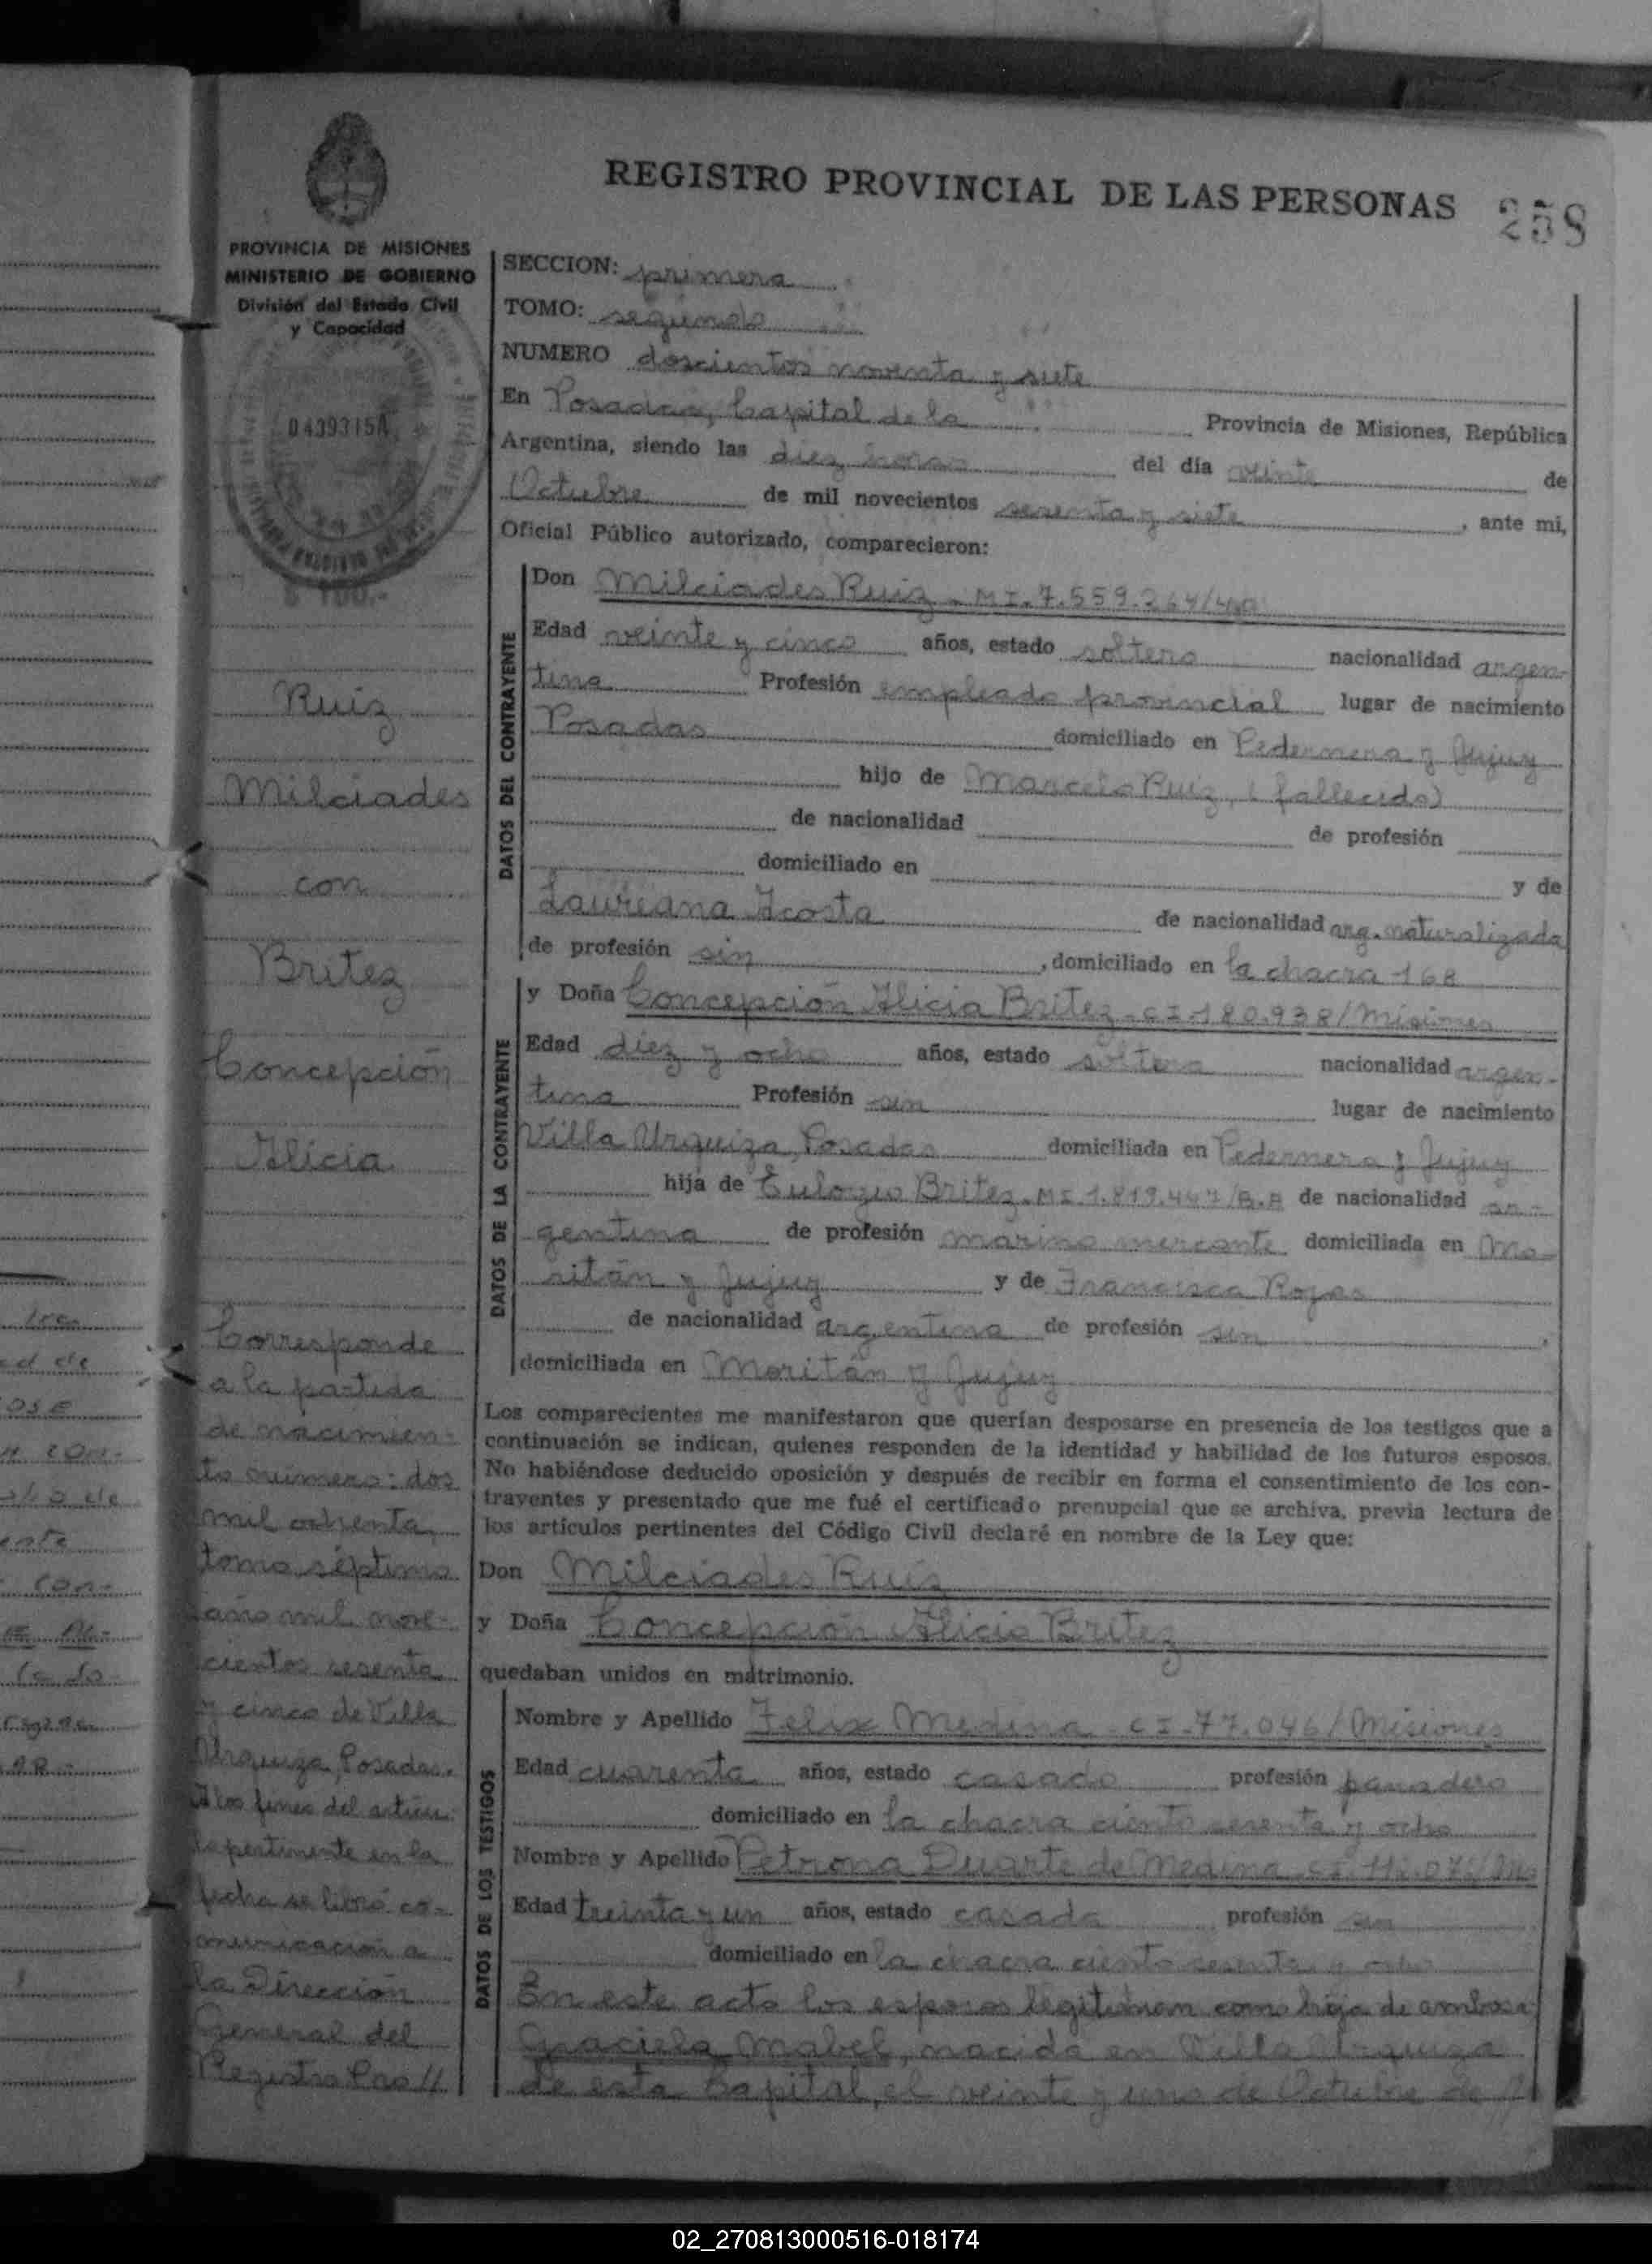 REGISTRO PROVINCIAL DE LAS PERSONAS 258
PROVINCIA DE MISIONES
MINISTERIO DE GOBIERNO
División del Estado Civil
y Capacidad
0439315A
$ 100.-
Ruiz
Milciades
con
Britez
Concepción
Alicia
Corresponde
a la partida
de nacimien-
to número: dos
mil ochenta,
tomo séptimo
año mil nove-
cientos sesenta
y cinco de Villa
Urquiza, Posadas.
A los fines del artícu-
lo pertinente en la
fecha se libró co-
municación a
la Dirección
General del
Registro Pro//
SECCION: primera
TOMO: segundo
NUMERO doscientos noventa y siete
En Posadas, Capital de la Provincia de Misiones, República
Argentina, siendo las diez horas del día veinte de
Octubre de mil novecientos sesenta y siete, ante mi,
Oficial Público autorizado, comparecieron:
DATOS DEL CONTRAYENTE
Don Milciades Ruiz - MI. 7.559.264/
Edad veinte y cinco años, estado soltero nacionalidad argen-
tina Profesión empleado provincial lugar de nacimiento
Posadas domiciliado en Pedernera y Jujuy
hijo de Marcelo Ruiz, (fallecido)
de nacionalidad de profesión
domiciliado en y de
Laureana Acosta de nacionalidad arg. naturalizada
de profesión sin, domiciliado en la chacra 168
DATOS DE LA CONTRAYENTE
y Doña Concepción Alicia Britez - CI - 180.938/Misiones
Edad diez y ocho años, estado soltera nacionalidad argen-
tina Profesión sin lugar de nacimiento
Villa Urquiza, Posadas domiciliada en Pedernera y Jujuy
hija de Eulogio Britez - MI 1.819.447/B.A de nacionalidad ar-
gentina de profesión marino mercante domiciliada en Mo-
ritán y Jujuy y de Francisca Rojas
de nacionalidad argentina de profesión sin,
domiciliada en Moritán y Jujuy
Los comparecientes me manifestaron que querían desposarse en presencia de los testigos que a
continuación se indican, quienes responden de la identidad y habilidad de los futuros esposos.
No habiéndose deducido oposición y después de recibir en forma el consentimiento de los con-
trayentes y presentado que me fué el certificado prenupcial que se archiva, previa lectura de
los artículos pertinentes del Código Civil declaré en nombre de la Ley que:
Don Milciades Ruiz
y Doña Concepción Alicia Britez
quedaban unidos en matrimonio.
DATOS DE LOS TESTIGOS
Nombre y Apellido Felix Medina - CI - 77.046/Misiones
Edad cuarenta años, estado casado profesión panadero
domiciliado en la chacra ciento sesenta y ocho
Nombre y Apellido Petrona Duarte de Medina
Edad treinta y un años, estado casada profesión sin
domiciliado en la chacra ciento sesenta y ocho
En este acto los esposos legitiman como hija de ambos a
Graciela Mabel, nacida en Villa Urquiza
de esta Capital, el veinte y uno de Octubre de
02_270813000516-018174